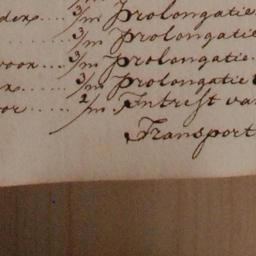 ders ..... 3/m Prolongatie
..... 3/m Prolongatie
voor .... 3/m Prolongatie.
.... 3/m Prolongatie
oor ...... 2/m. Intrest va
Transport